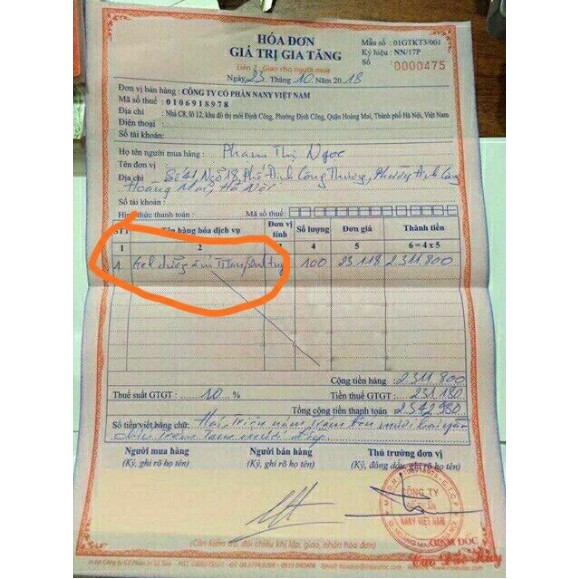 HÓA ĐƠN
GIÁ TRỊ GIA TĂNG
Liên 2: Giao cho người mua
Ngày 23 Tháng 10 Năm 2018
Mẫu số : 01GTKT3/001
Ký hiệu : NN/17P
Số 0000475
Đơn vị bán hàng : CÔNG TY CỔ PHẦN NANY VIỆT NAM
Mã số thuế : 0106918978
Địa chỉ : Nhà CK, lô 12, khu đô thị mới Định Công, Phường Định Công, Quận Hoàng Mai, Thành phố Hà Nội, Việt Nam
Điện thoại :
Số tài khoản:
Họ tên người mua hàng : Phạm Thị Ngọc
Tên đơn vị
Địa chỉ : Số 41, Ngõ 18, Phố Định Công Thượng, Phường Định Công
Hoàng Mai, Hà Nội
Số tài khoản :
Hình thức thanh toán : Mã số thuế:
STT Tên hàng hóa dịch vụ Đơn vị tính Số lượng Đơn giá Thành tiền
1 2 3 4 5 6 = 4 x 5
1 Gel dưỡng ẩm tuýp 100 23.118 2.311.800
Cộng tiền hàng : 2.311.800
Thuế suất GTGT : 10 % Tiền thuế GTGT : 231.180
Tổng cộng tiền thanh toán : 2.542.980
Số tiền viết bằng chữ: Hai triệu năm trăm bốn mươi hai nghìn
chín trăm tám mươi đồng.
Người mua hàng Người bán hàng Thủ trưởng đơn vị
(Ký, ghi rõ họ tên) (Ký, ghi rõ họ tên) (Ký, đóng dấu, ghi rõ họ tên)
CÔNG TY
CỔ PHẦN
NANY VIỆT NAM
GIÁM ĐỐC
(Cần kiểm tra, đối chiếu khi lập, giao, nhận hóa đơn)